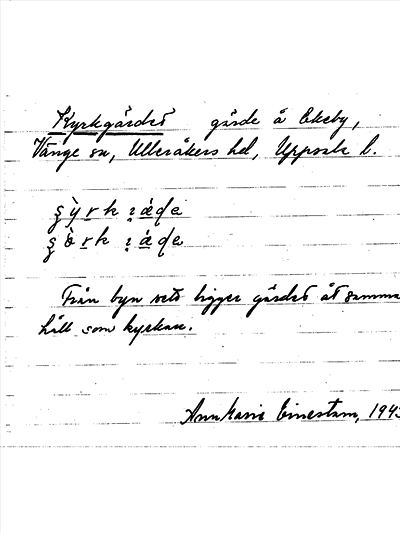 Kyrkgärdet gärde å Ekeby,
Vänge sn, Ulleråkers hd, Uppsala l.
Från byn sett ligger gärdet åt samma
håll som kyrkan.
AnnMarie Einestam, 1943